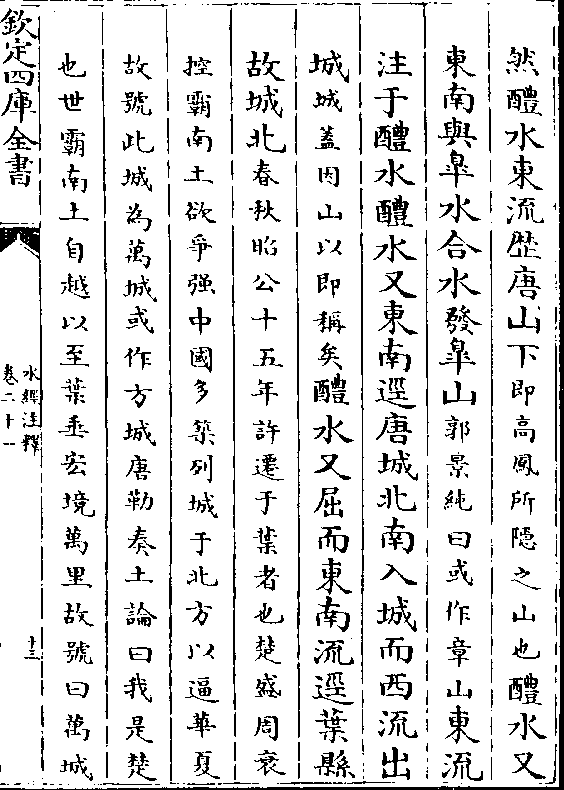 然醴水東流歴唐山下即高鳳所隱之山也醴水又
東南與臯水合水發臯山郭景純曰或作章山東流
注于醴水醴水又東南逕唐城北南入城而西流出
城城蓋因山以即稱矣醴水又屈而東南流逕葉縣
故城北春秋昭公十五年許遷于葉者也楚盛周衰
控霸南土欲爭强中國多築列城于北方以逼華夏
故號此城為萬城或作方城唐勒奏土論曰我是楚
也世霸南土自越以至葉垂宏境萬里故號曰萬城
欽定四庫全書
水經注釋
卷二十一
十三